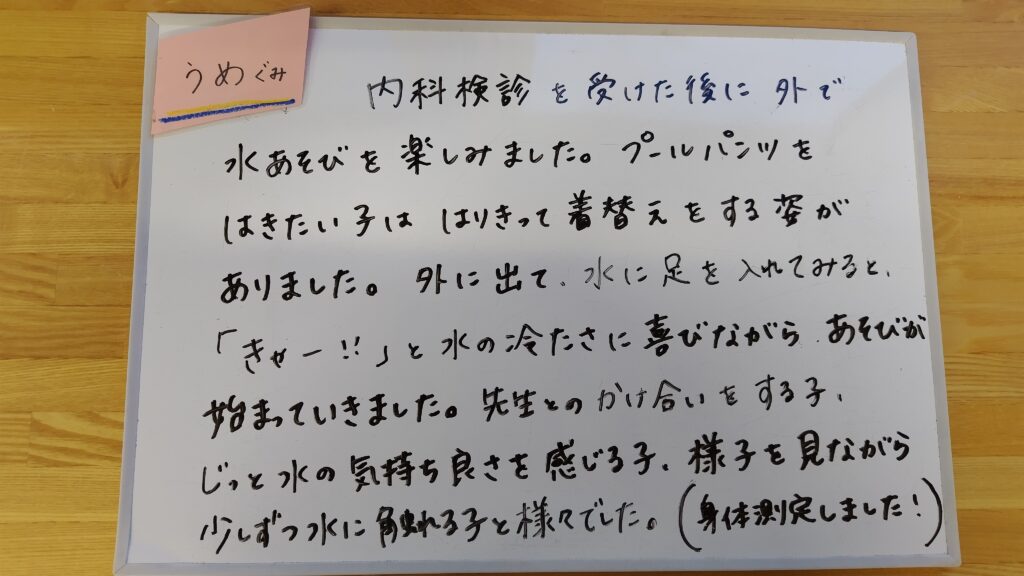 うめぐみ
内科検診を受けた後に外で
水あそびを楽しみました。プールパンツを
はきたい子ははりきって着替えをする姿が
ありました。外に出て、水に足を入れてみると、
「きゃー!!」と水の冷たさに喜びながら、あそびが
始まっていきました。先生とのかけ合いをする子、
じっと水の気持ち良さを感じる子、様子を見ながら
少しずつ水に触れる子と様々でした。(身体測定しました!)